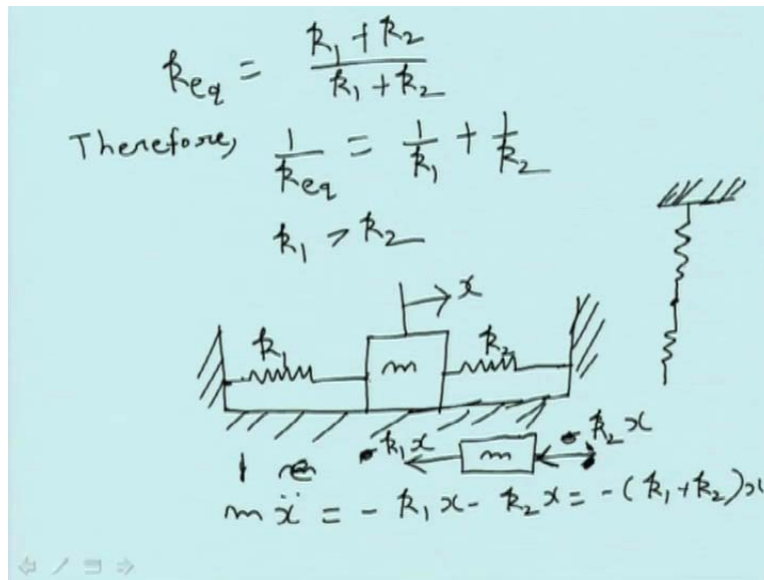 k_eq = (k₁ + k₂) / (k₁ + k₂)
Therefore, 1/k_eq = 1/k₁ + 1/k₂
k₁ > k₂
x
k₁ m k₂
k₁x m k₂x
mẍ = - k₁x - k₂x = -(k₁ + k₂)x